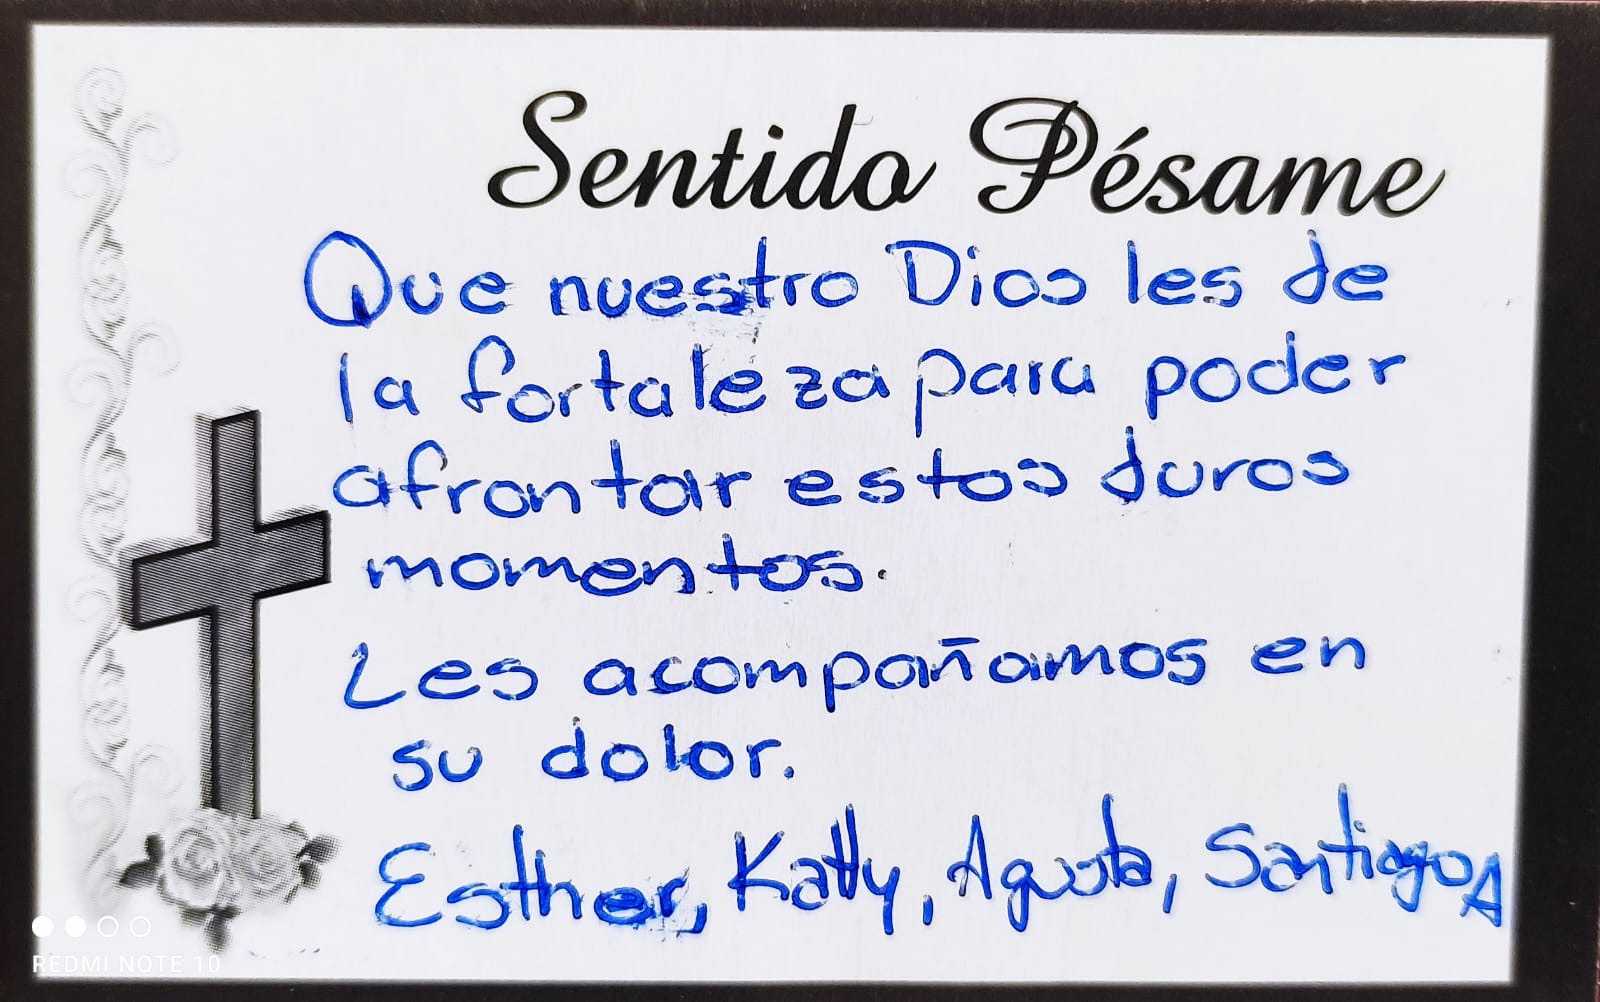 Sentido Pésame
Que nuestro Dios les de
la fortaleza para poder
afrontar estos duros
momentos.
Les acompañamos en
su dolor.
Esther, Katty, Agusta, Santiago A
REDMI NOTE 10